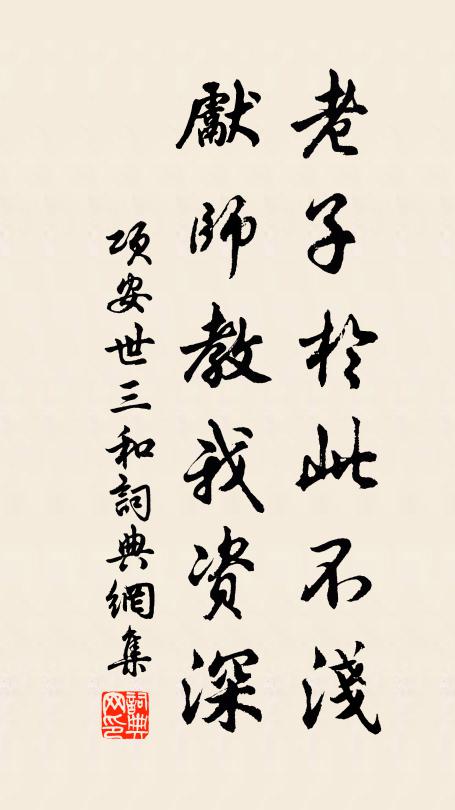 老子於此不淺
獻師教我資深
項安世三和詞典網集
詞典網印